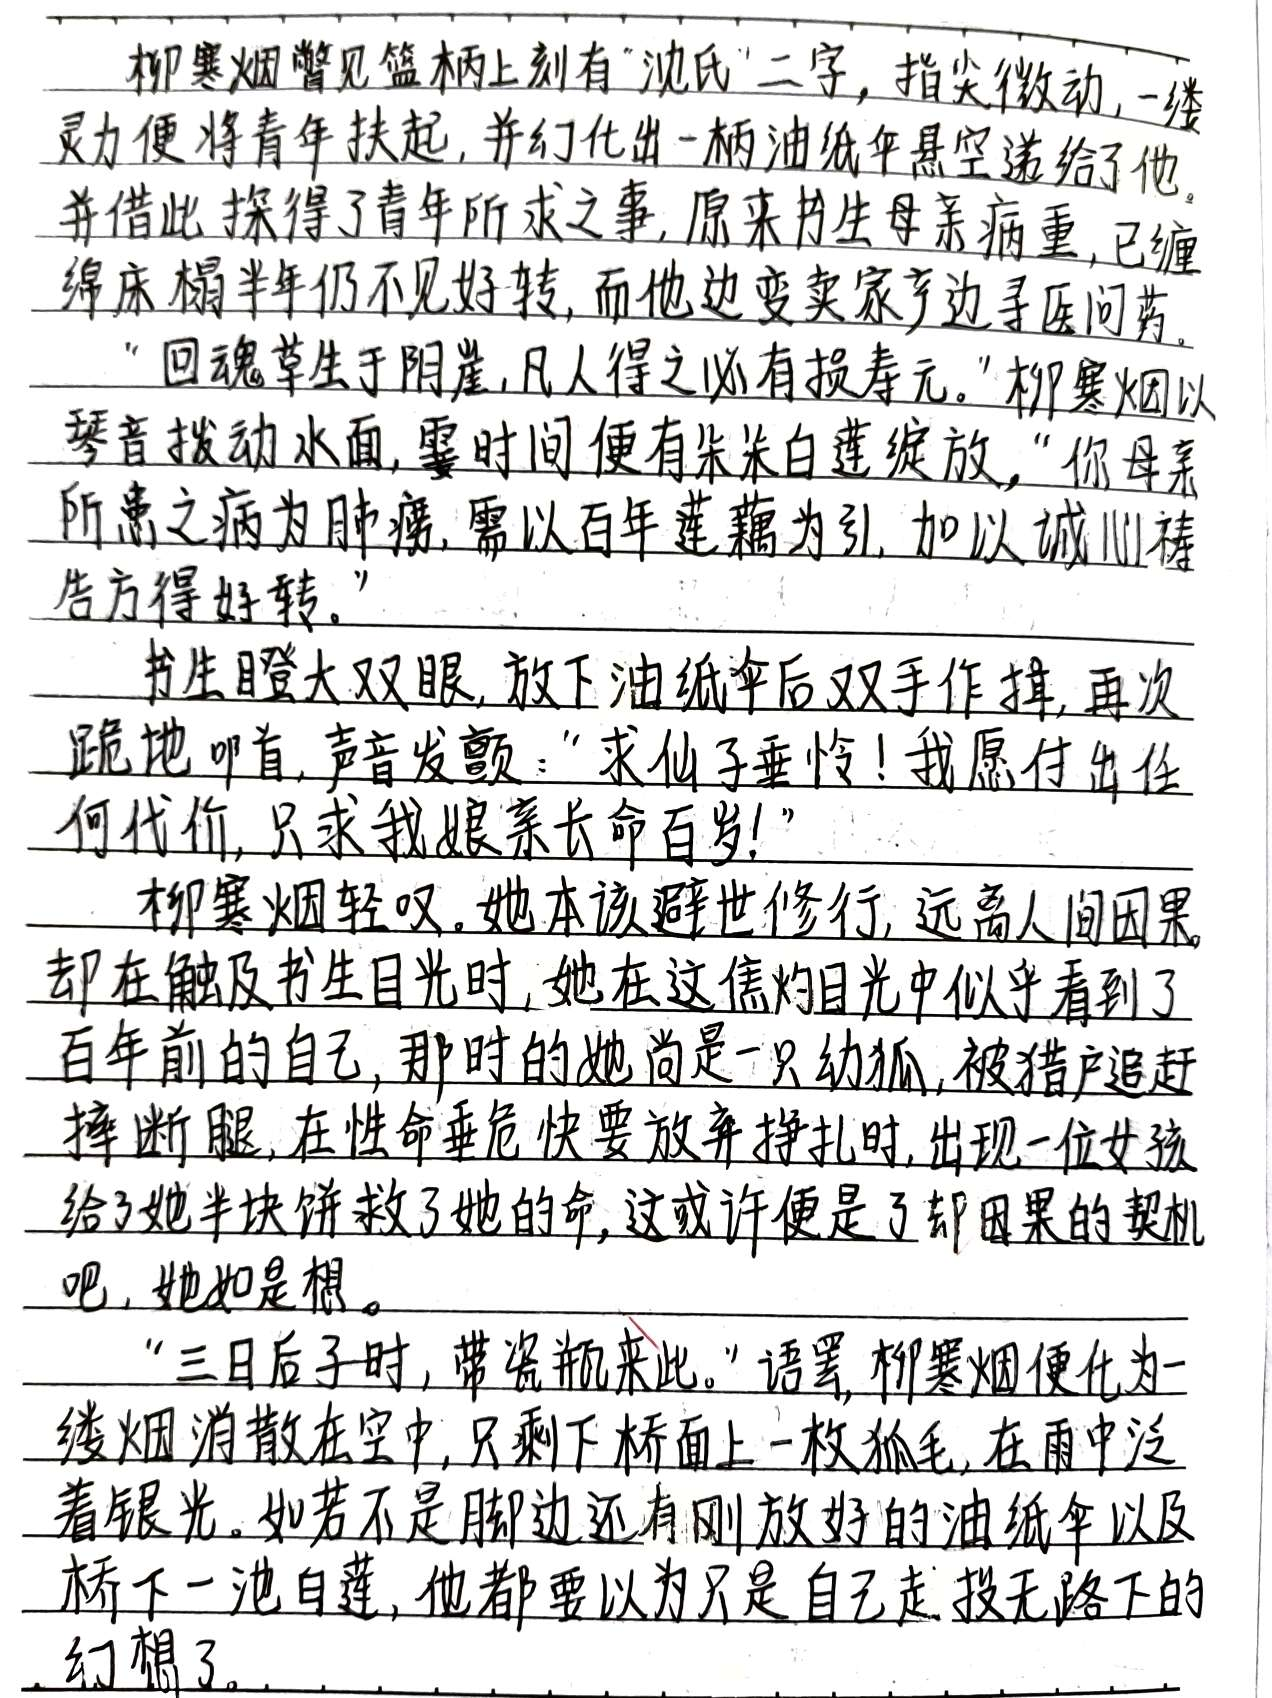 柳寒烟瞥见篮柄上刻有“沈氏”二字，指尖微动，一缕
灵力便将青年扶起，并幻化出一柄油纸伞悬空递给了他。
并借此探得了青年所求之事，原来书生母亲病重，已缠
绵床榻半年仍不见好转，而他边变卖家产边寻医问药。
“回魂草生于阴崖，凡人得之必有损寿元。”柳寒烟以
琴音拨动水面，霎时间便有朵朵白莲绽放，“你母亲
所患之病为肺痨，需以百年莲藕为引，加以诚心祷
告方得好转。”
书生瞪大双眼，放下油纸伞后双手作揖，再次
跪地叩首，声音发颤：“求仙子垂怜！我愿付出任
何代价，只求我娘亲长命百岁！”
柳寒烟轻叹。她本该避世修行，远离人间因果。
却在触及书生目光时，她在这焦灼目光中似乎看到了
百年前的自己，那时的她尚是一只幼狐，被猎户追赶
摔断腿，在性命垂危快要放弃挣扎时，出现一位女孩
给了她半块饼救了她的命，这或许便是了却因果的契机
吧，她如是想。
“三日后子时，带瓷瓶来此。”语罢，柳寒烟便化为一
缕烟消散在空中，只剩下桥面上一枚狐毛，在雨中泛
着银光。如若不是脚边还有刚放好的油纸伞以及
桥下一池白莲，他都要以为只是自己走投无路下的
幻想了。